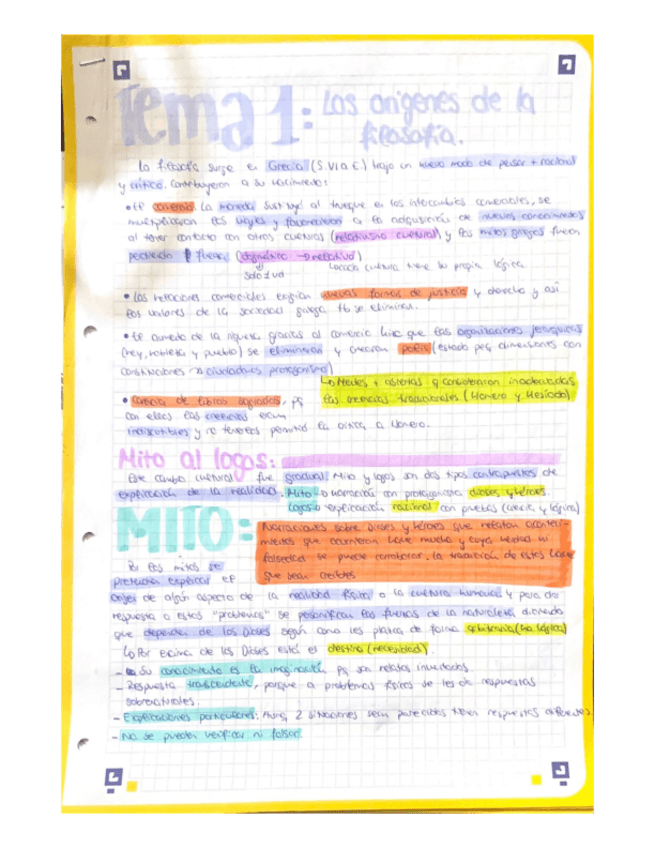 Tema 1: Los origenes de la
filosofía.
La filosofía surge en Grecia (S.VI a.C.) trajo un nuevo modo de pensar + racional
y crítico. Contribuyeron a su nacimiento:
• El comercio. La moneda sustituyó al trueque en los intercambios comerciales, se
multiplicaron los viajes y favorecieron a la adquisición de nuevos conocimientos
al tener contacto con otras culturas (relativismo cultural), y los mitos griegos fueron
perdiendo fuerza (dogmático → relativo)
solo 1 vd
cada cultura tiene su propia lógica
• Las relaciones comerciales exigían nuevas formas de justicia y derecho y así
los valores de la sociedad griega tb se eliminan.
• El aumento de la riqueza gracias al comercio hizo que las organizaciones jerárquicas
(rey, nobleza y pueblo) se eliminaran y crearon polis (estado peq dimensiones con
constituciones → ciudadanos protagonismo)
↳ Mentes + abiertas q consideraron inadecuadas
las creencias tradicionales (Homero y Hesíodo)
• Carencia de libros sagrados, pq
con ellos las creencias eran
indiscutibles y no tenerlos permitió la crítica a Homero.
Mito al logos:
Este cambio cultural fue gradual. Mito y logos son dos tipos contrapuestos de
explicación de la realidad. Mito → narración con protagonistas dioses y héroes.
Logos → explicación racional con pruebas (ciencia y lógica)
MITO:
Narraciones sobre dioses y héroes que relatan aconteci-
mientos que ocurrieron hace mucho y cuya verdad ni
falsedad se puede corroborar. La tradición de estos hace
que sean creíbles
En los mitos se
pretende explicar el
origen de algún aspecto de la realidad física o la cultura humana y para dar
respuesta a estos "problemas" se personifican las fuerzas de la naturaleza diciendo
que dependen de los Dioses según como les plazca de forma arbitraria (no lógica)
↳ Por encima de los Dioses está el destino (necesidad).
- Su conocimiento es la imaginación pq son relatos inventados.
- Respuesta trascendente, porque a problemas físicos se les da respuestas
sobrenaturales.
- Explicaciones particulares: Aunq 2 situaciones sean parecidas tienen respuestas diferentes
- No se pueden verificar ni falsar.